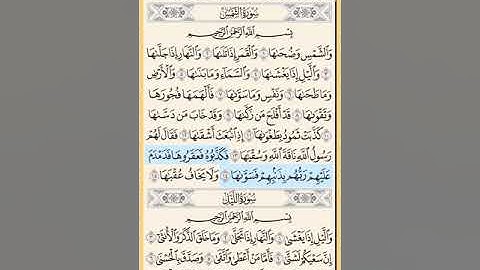 سُورَةُ الشَّمْسِ
بِسْمِ اللَّهِ الرَّحْمَٰنِ الرَّحِيمِ
وَالشَّمْسِ وَضُحَىٰهَا ١ وَالْقَمَرِ إِذَا تَلَىٰهَا ٢ وَالنَّهَارِ إِذَا جَلَّىٰهَا
٣ وَالَّيْلِ إِذَا يَغْشَىٰهَا ٤ وَالسَّمَآءِ وَمَا بَنَىٰهَا ٥ وَالْأَرْضِ
وَمَا طَحَىٰهَا ٦ وَنَفْسٍ وَمَا سَوَّىٰهَا ٧ فَأَلْهَمَهَا فُجُورَهَا
وَتَقْوَىٰهَا ٨ قَدْ أَفْلَحَ مَن زَكَّىٰهَا ٩ وَقَدْ خَابَ مَن دَسَّىٰهَا
١٠ كَذَّبَتْ ثَمُودُ بِطَغْوَىٰهَا ١١ إِذِ انۢبَعَثَ أَشْقَىٰهَا ١٢ فَقَالَ لَهُمْ
رَسُولُ اللَّهِ نَاقَةَ اللَّهِ وَسُقْيَٰهَا ١٣ فَكَذَّبُوهُ فَعَقَرُوهَا فَدَمْدَمَ
عَلَيْهِمْ رَبُّهُم بِذَنۢبِهِمْ فَسَوَّىٰهَا ١٤ وَلَا يَخَافُ عُقْبَٰهَا ١٥
سُورَةُ اللَّيْلِ
بِسْمِ اللَّهِ الرَّحْمَٰنِ الرَّحِيمِ
وَالَّيْلِ إِذَا يَغْشَىٰ ١ وَالنَّهَارِ إِذَا تَجَلَّىٰ ٢ وَمَا خَلَقَ الذَّكَرَ وَالْأُنثَىٰٓ ٣
إِنَّ سَعْيَكُمْ لَشَتَّىٰ ٤ فَأَمَّا مَنْ أَعْطَىٰ وَاتَّقَىٰ ٥ وَصَدَّقَ بِالْحُسْنَىٰ ٦